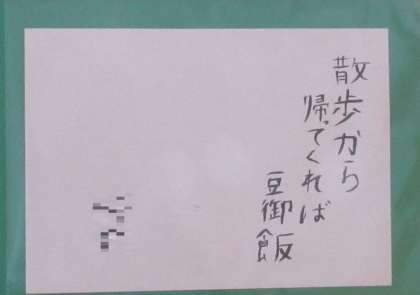 散歩から
帰てくれば
豆御飯